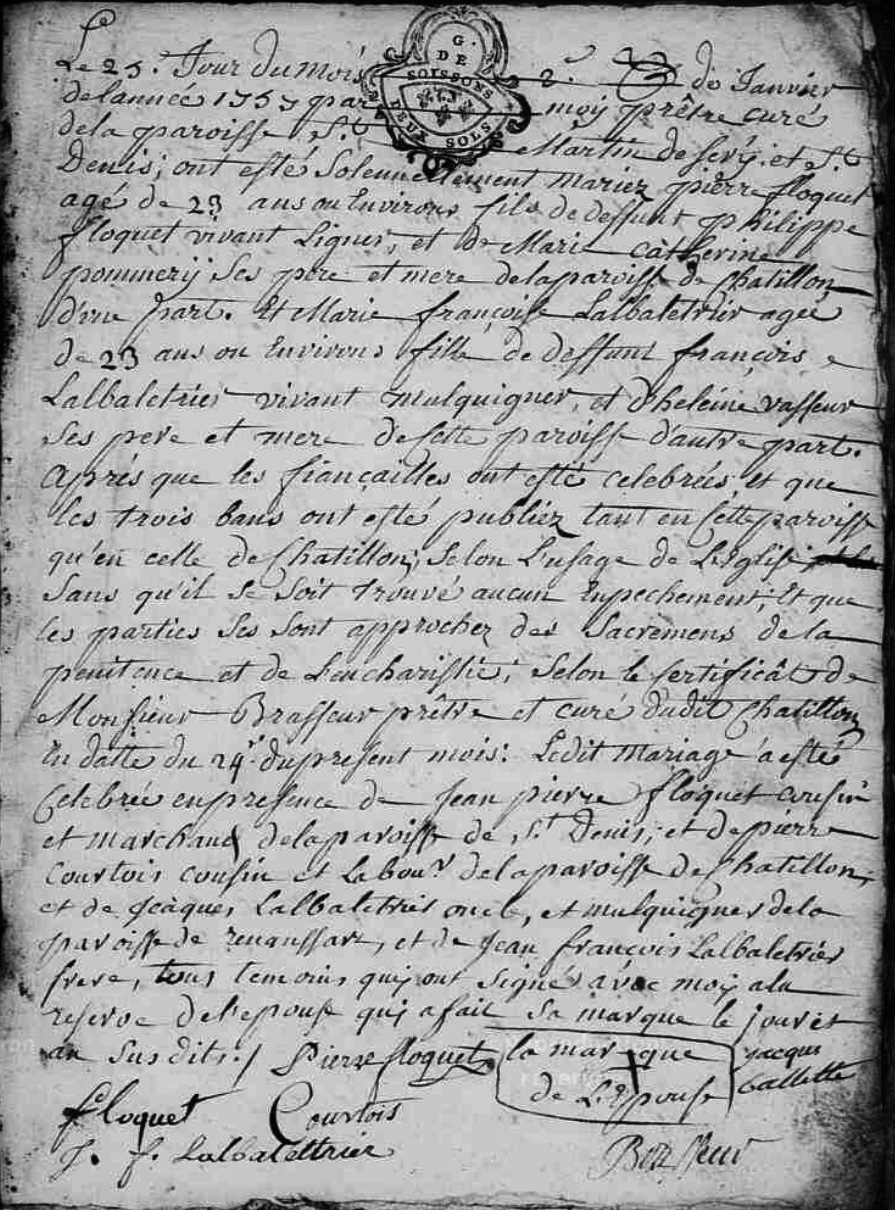 G.
DE
SOISSONS
DEUX SOLS
Le 25. Jour du mois de Janvier
de l'année 1757 par moy prêtre curé
dela paroisse St Martin de Sery et St
Denis; ont esté Solennellement mariez pierre floquet
agé de 23 ans ou Environs fils de deffunt philippe
floquet vivant Ligner, et de Marie catherine
pommery Ses pere et mere dela paroisse de Chatillon
d'une part. Et Marie françoise Lalbaletrier agée
de 23 ans ou Environs fille de deffunt françois
Lalbaletrier vivant mulquigner, et d'heleine vasseur
Ses pere et mere de Cette paroisse d'autre part.
Aprés que les fiançailles ont esté celebrées, et que
les trois bans ont esté publiez tant en Cette paroisse
qu'en celle de Chatillon; Selon L'usage de L'Eglise
Sans qu'il se Soit trouvé aucun Enpechement; Et que
les parties Ses Sont approchez des Sacremens dela
penitence et de L'eucharistie; Selon le Certificât de
Monsieur Brasseur prêtre et curé dudit Chatillon
En datte du 24 du present mois: Ledit Mariage a esté
Celebrée en presence de Jean pierre floquet cousin
et marchand dela paroisse de St Denis; et de pierre
Courtois cousin et Labour dela paroisse de Chatillon;
et de Jcâques Lalbaletrier oncle, et mulquigner dela
paroisse de renanssart, et de Jean françois Lalbaletrier
frere, tous temoins quj ont Signés avec moy a la
reserve del'epouse quj a fait Sa marque le jour et
an Susdits./ Pierre floquet la marque jacques
de L'Epouse
floquet Courtois
J. f. Lalbalettrier